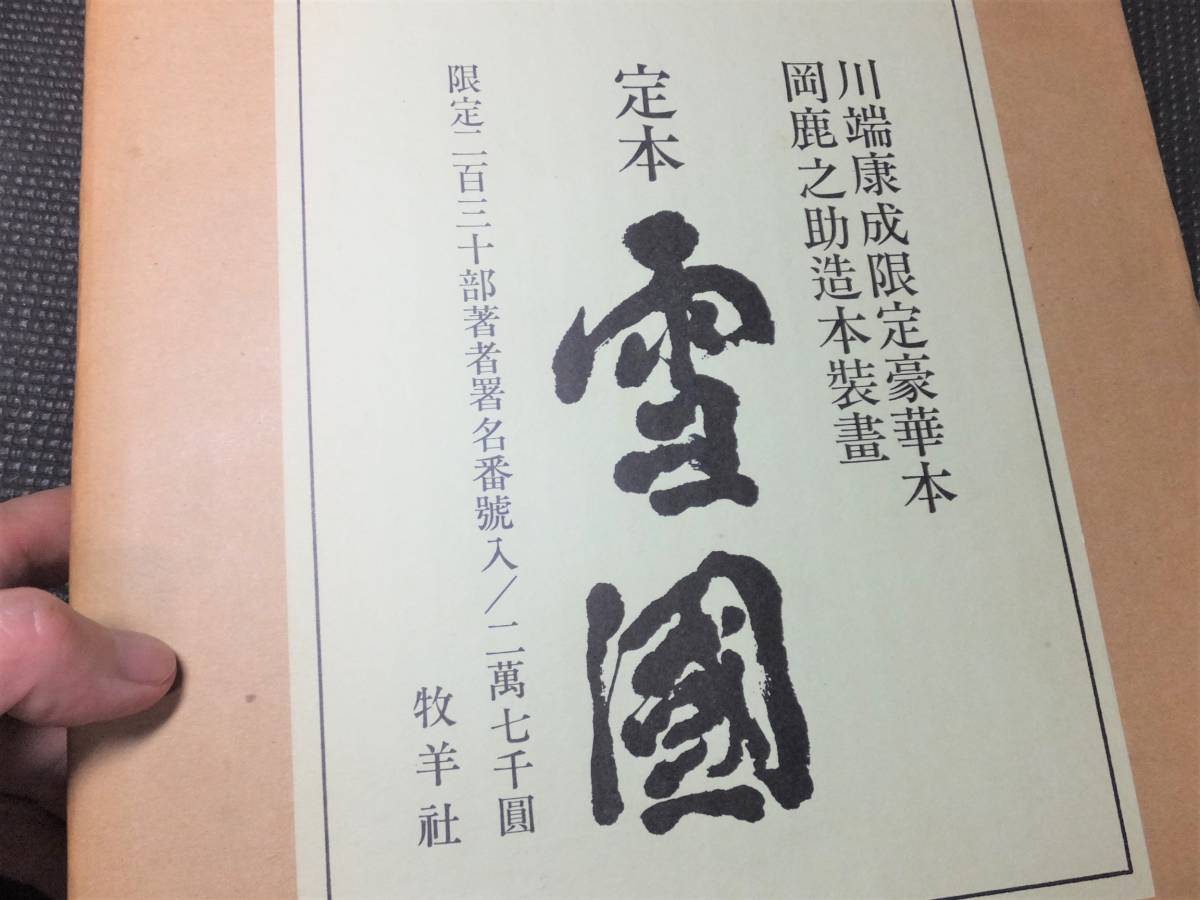 川端康成限定豪華本
岡鹿之助造本装畫
定本 雪國
限定二百三十部著者署名番號入/二萬七千圓
牧羊社